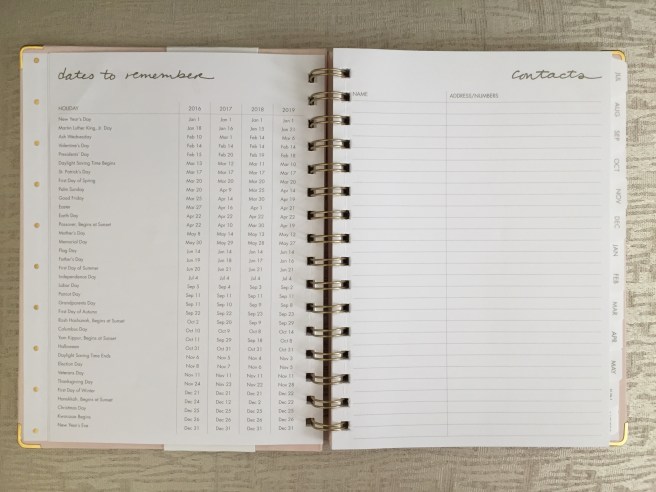 dates to remember
HOLIDAY 2016 2017 2018 2019
New Year's Day Jan 1 Jan 1 Jan 1 Jan 1
Martin Luther King, Jr. Day Jan 18 Jan 16 Jan 15 Jan 21
Ash Wednesday Feb 10 Mar 1 Feb 14 Mar 6
Valentine's Day Feb 14 Feb 14 Feb 14 Feb 14
Presidents' Day Feb 15 Feb 20 Feb 19 Feb 18
Daylight Saving Time Begins Mar 13 Mar 12 Mar 11 Mar 10
St. Patrick's Day Mar 17 Mar 17 Mar 17 Mar 17
First Day of Spring Mar 20 Mar 20 Mar 20 Mar 20
Palm Sunday Mar 20 Apr 9 Mar 25 Apr 14
Good Friday Mar 25 Apr 14 Mar 30 Apr 19
Easter Mar 27 Apr 16 Apr 1 Apr 21
Earth Day Apr 22 Apr 22 Apr 22 Apr 22
Passover, Begins at Sunset Apr 22 Apr 10 Mar 30 Apr 19
Mother's Day May 8 May 14 May 13 May 12
Memorial Day May 30 May 29 May 28 May 27
Flag Day Jun 14 Jun 14 Jun 14 Jun 14
Father's Day Jun 19 Jun 18 Jun 17 Jun 16
First Day of Summer Jun 20 Jun 21 Jun 21 Jun 21
Independence Day Jul 4 Jul 4 Jul 4 Jul 4
Labor Day Sep 5 Sep 4 Sep 3 Sep 2
Patriot Day Sep 11 Sep 11 Sep 11 Sep 11
Grandparents Day Sep 11 Sep 10 Sep 9 Sep 8
First Day of Autumn Sep 22 Sep 22 Sep 22 Sep 23
Rosh Hashanah, Begins at Sunset Oct 2 Sep 20 Sep 9 Sep 29
Columbus Day Oct 10 Oct 9 Oct 8 Oct 14
Yom Kippur, Begins at Sunset Oct 11 Sep 29 Sep 18 Oct 8
Halloween Oct 31 Oct 31 Oct 31 Oct 31
Daylight Saving Time Ends Nov 6 Nov 5 Nov 4 Nov 3
Election Day Nov 8 Nov 7 Nov 6 Nov 5
Veterans Day Nov 11 Nov 11 Nov 11 Nov 11
Thanksgiving Day Nov 24 Nov 23 Nov 22 Nov 28
First Day of Winter Dec 21 Dec 21 Dec 21 Dec 21
Hanukkah, Begins at Sunset Dec 24 Dec 12 Dec 2 Dec 22
Christmas Day Dec 25 Dec 25 Dec 25 Dec 25
Kwanzaa Begins Dec 26 Dec 26 Dec 26 Dec 26
New Year's Eve Dec 31 Dec 31 Dec 31 Dec 31
contacts
NAME ADDRESS/NUMBERS
JUL
AUG
SEP
OCT
NOV
DEC
JAN
FEB
MAR
APR
MAY